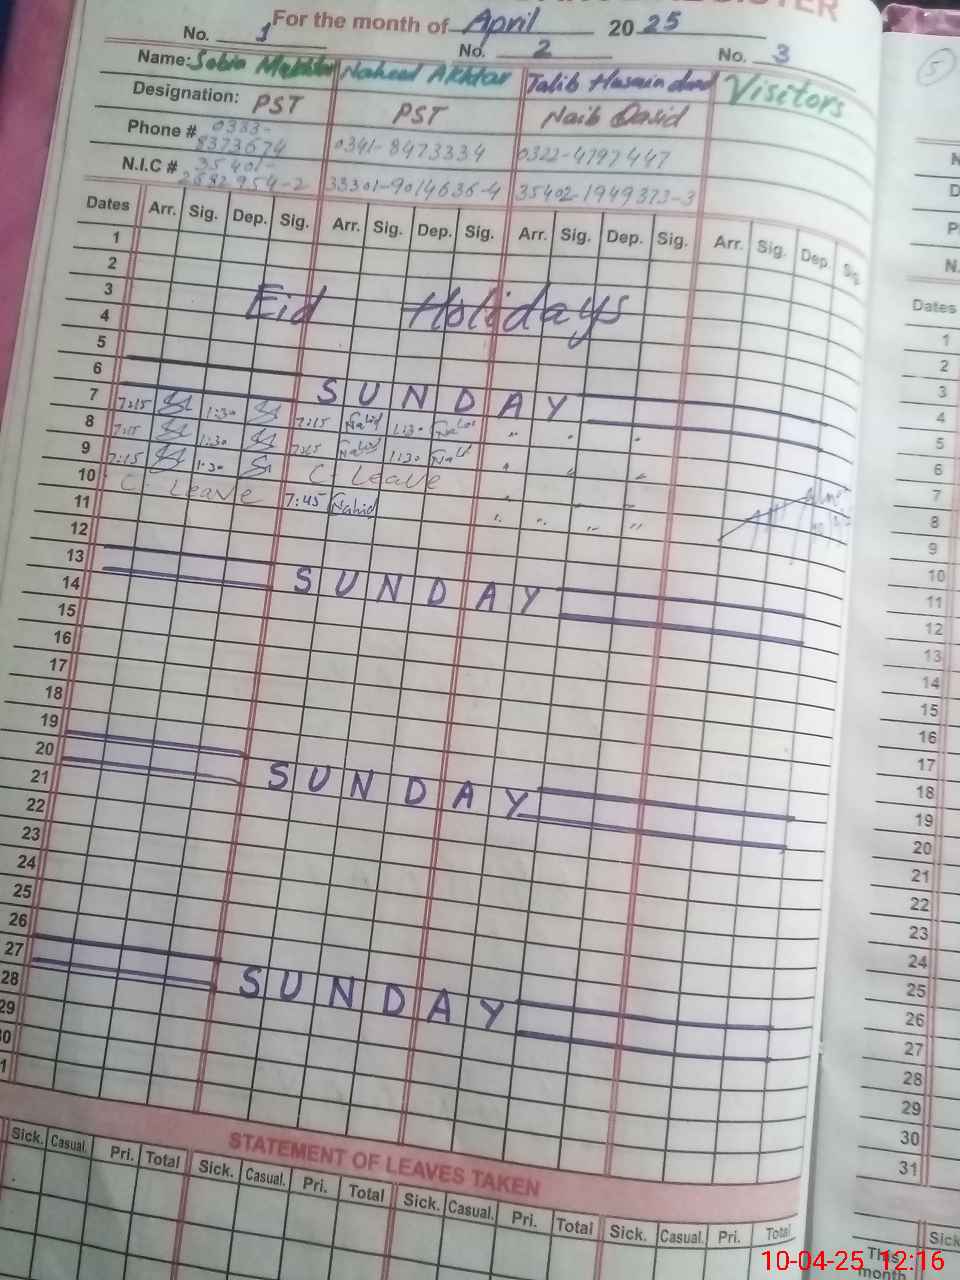 For the month of April 2025
No. 1 No. 2 No. 3
Name: Sobia Naheed Akhtar Talib Hussain Visitors
Designation: PST PST Naib Qasid
Phone # 0333-8373674 0341-8473334 0322-4797447
N.I.C # 35401-2682954-2 33301-9014636-4 35402-1949373-3
Dates Arr. Sig. Dep. Sig. Arr. Sig. Dep. Sig. Arr. Sig. Dep. Sig. Arr. Sig. Dep. Sig.
1
2
3
4
Eid Holidays
5
6
SUNDAY
7 7:15 1:30 7:15 Nahid 1:30
8 7:15 1:30 7:45 Nahid 1:30
9 7:15 1:30 C-Leave
10 C-Leave 7:45 Nahid
11
12
13
SUNDAY
14
15
16
17
18
19
20
SUNDAY
21
22
23
24
25
26
27
SUNDAY
28
29
30
1
STATEMENT OF LEAVES TAKEN
Sick. Casual. Pri. Total Sick. Casual. Pri. Total Sick. Casual. Pri. Total Sick. Casual. Pri. Total
5
N
D
P
N.
Dates
1
2
3
4
5
6
7
8
9
10
11
12
13
14
15
16
17
18
19
20
21
22
23
24
25
26
27
28
29
30
31
Sick
This month
10-04-25 12:16